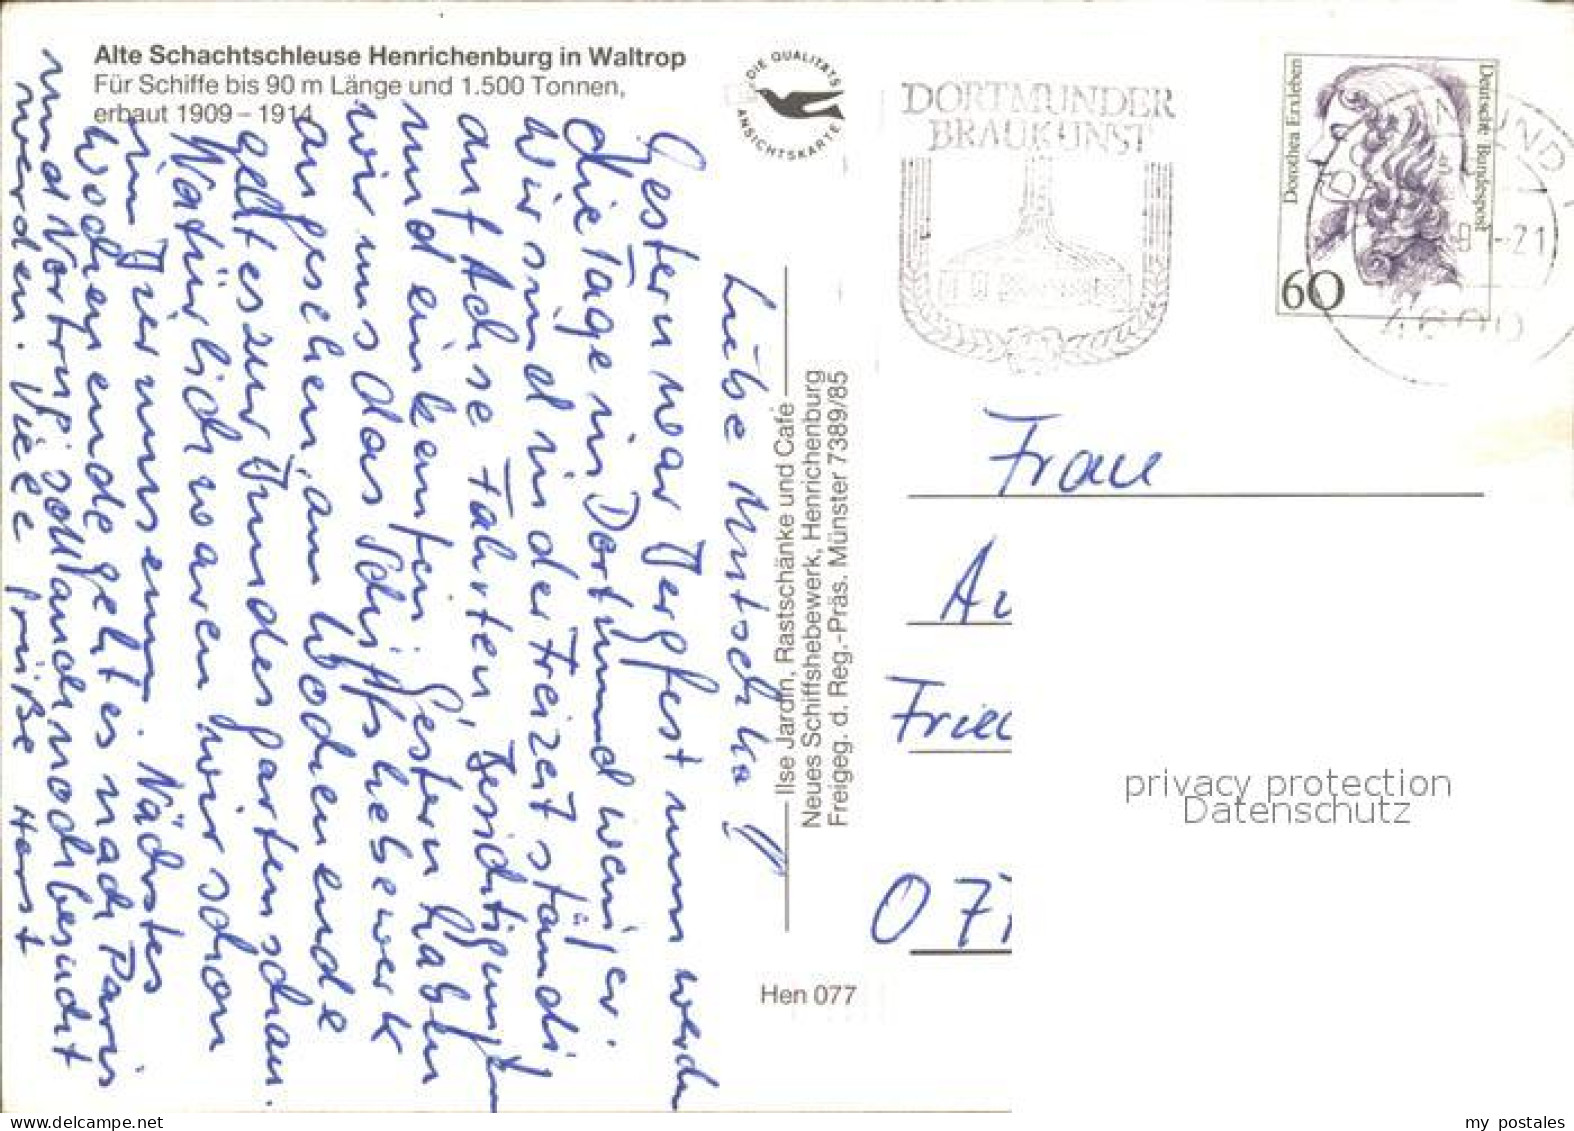 Alte Schachtschleuse Henrichenburg in Waltrop
Für Schiffe bis 90 m Länge und 1.500 Tonnen,
erbaut 1909 – 1914
DIE QUALITÄTS
ANSICHTSKARTE
DORTMUNDER
BRAUKUNST
Dorothea Erxleben
Deutsche Bundespost
60
-21
4600
Liebe Mutschka
Gestern war Bergfest nun werden
die Tage in Dortmund weniger.
Wir sind in der Freizeit ständig
auf Achse Fahrten, Besichtigungen
und einkaufen. Gestern haben
wir uns das Schiffshebewerk
angesehen, am Wochenende
geht es zur Bundesgartenschau.
Natürlich waren wir schon
im Biermuseum. Nächstes
Wochenende geht es nach Paris
und Vortrug soll auch noch besucht
werden. Viele Grüße Horst
Ilse Jardin, Rastschänke und Café
Neues Schiffshebewerk, Henrichenburg
Freigeg. d. Reg.-Präs. Münster 7389/85
Hen 077
Frau
Au
Fried
O 77
privacy protection
Datenschutz
www.delcampe.net
my postales